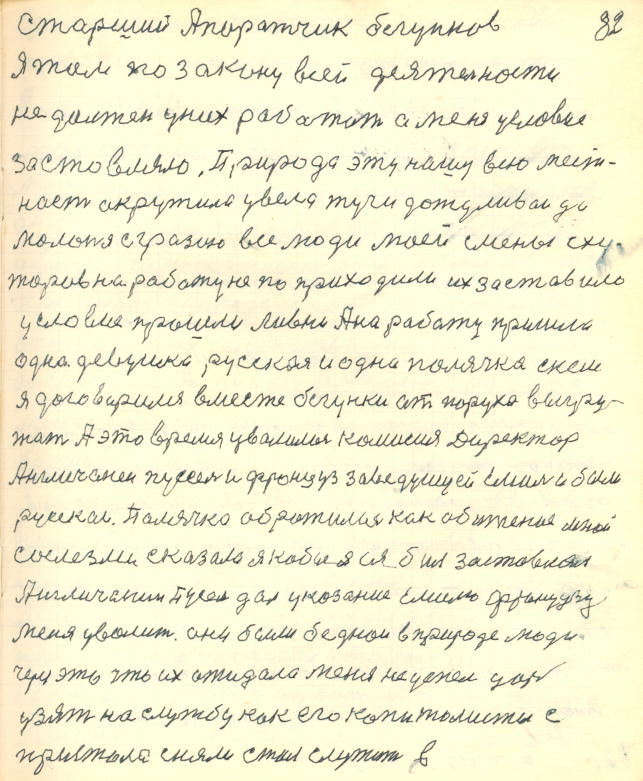 Старший Апоратчик бегунов 82
Я там по закону всей деятелности
не должен уних работат а меня условие
застовляло. Природа эту нашу всю мест-
ност окружила увела тучи дождливаи да
молоня сгразою все люди моей смены сху-
торов на работу не по приходили их заставило
условие прошли ливни Ана работу пришла
одна девушка русская и одна полячка скем
я договорился вместе бегунки от пороха выгру-
жат А это время увалился комисия Директор
Англичанен пуссел и француз заведущей Емил и были
русскаи. Палячка обротился как обиженая мной
сослезми сказала якобы я ся бил застовлял
Англичанин Пусел дал указание Емилю французу
меня уволит. они были беднои вприроде люди
чем это что их ожидала меня не успел царь
узят на службу как его копитолисты с
пристола сняли стал служит в